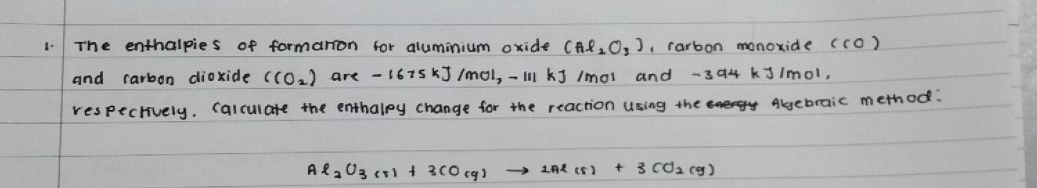 1. The enthalpies of formation for aluminium oxide (Al₂O₃), carbon monoxide (CO)
and carbon dioxide (CO₂) are -1675 kJ/mol, -111 kJ/mol and -394 kJ/mol,
respectively. Calculate the enthalpy change for the reaction using the energy Algebraic method:
Al₂O₃ (s) + 3CO (g) → 2Al (s) + 3CO₂ (g)